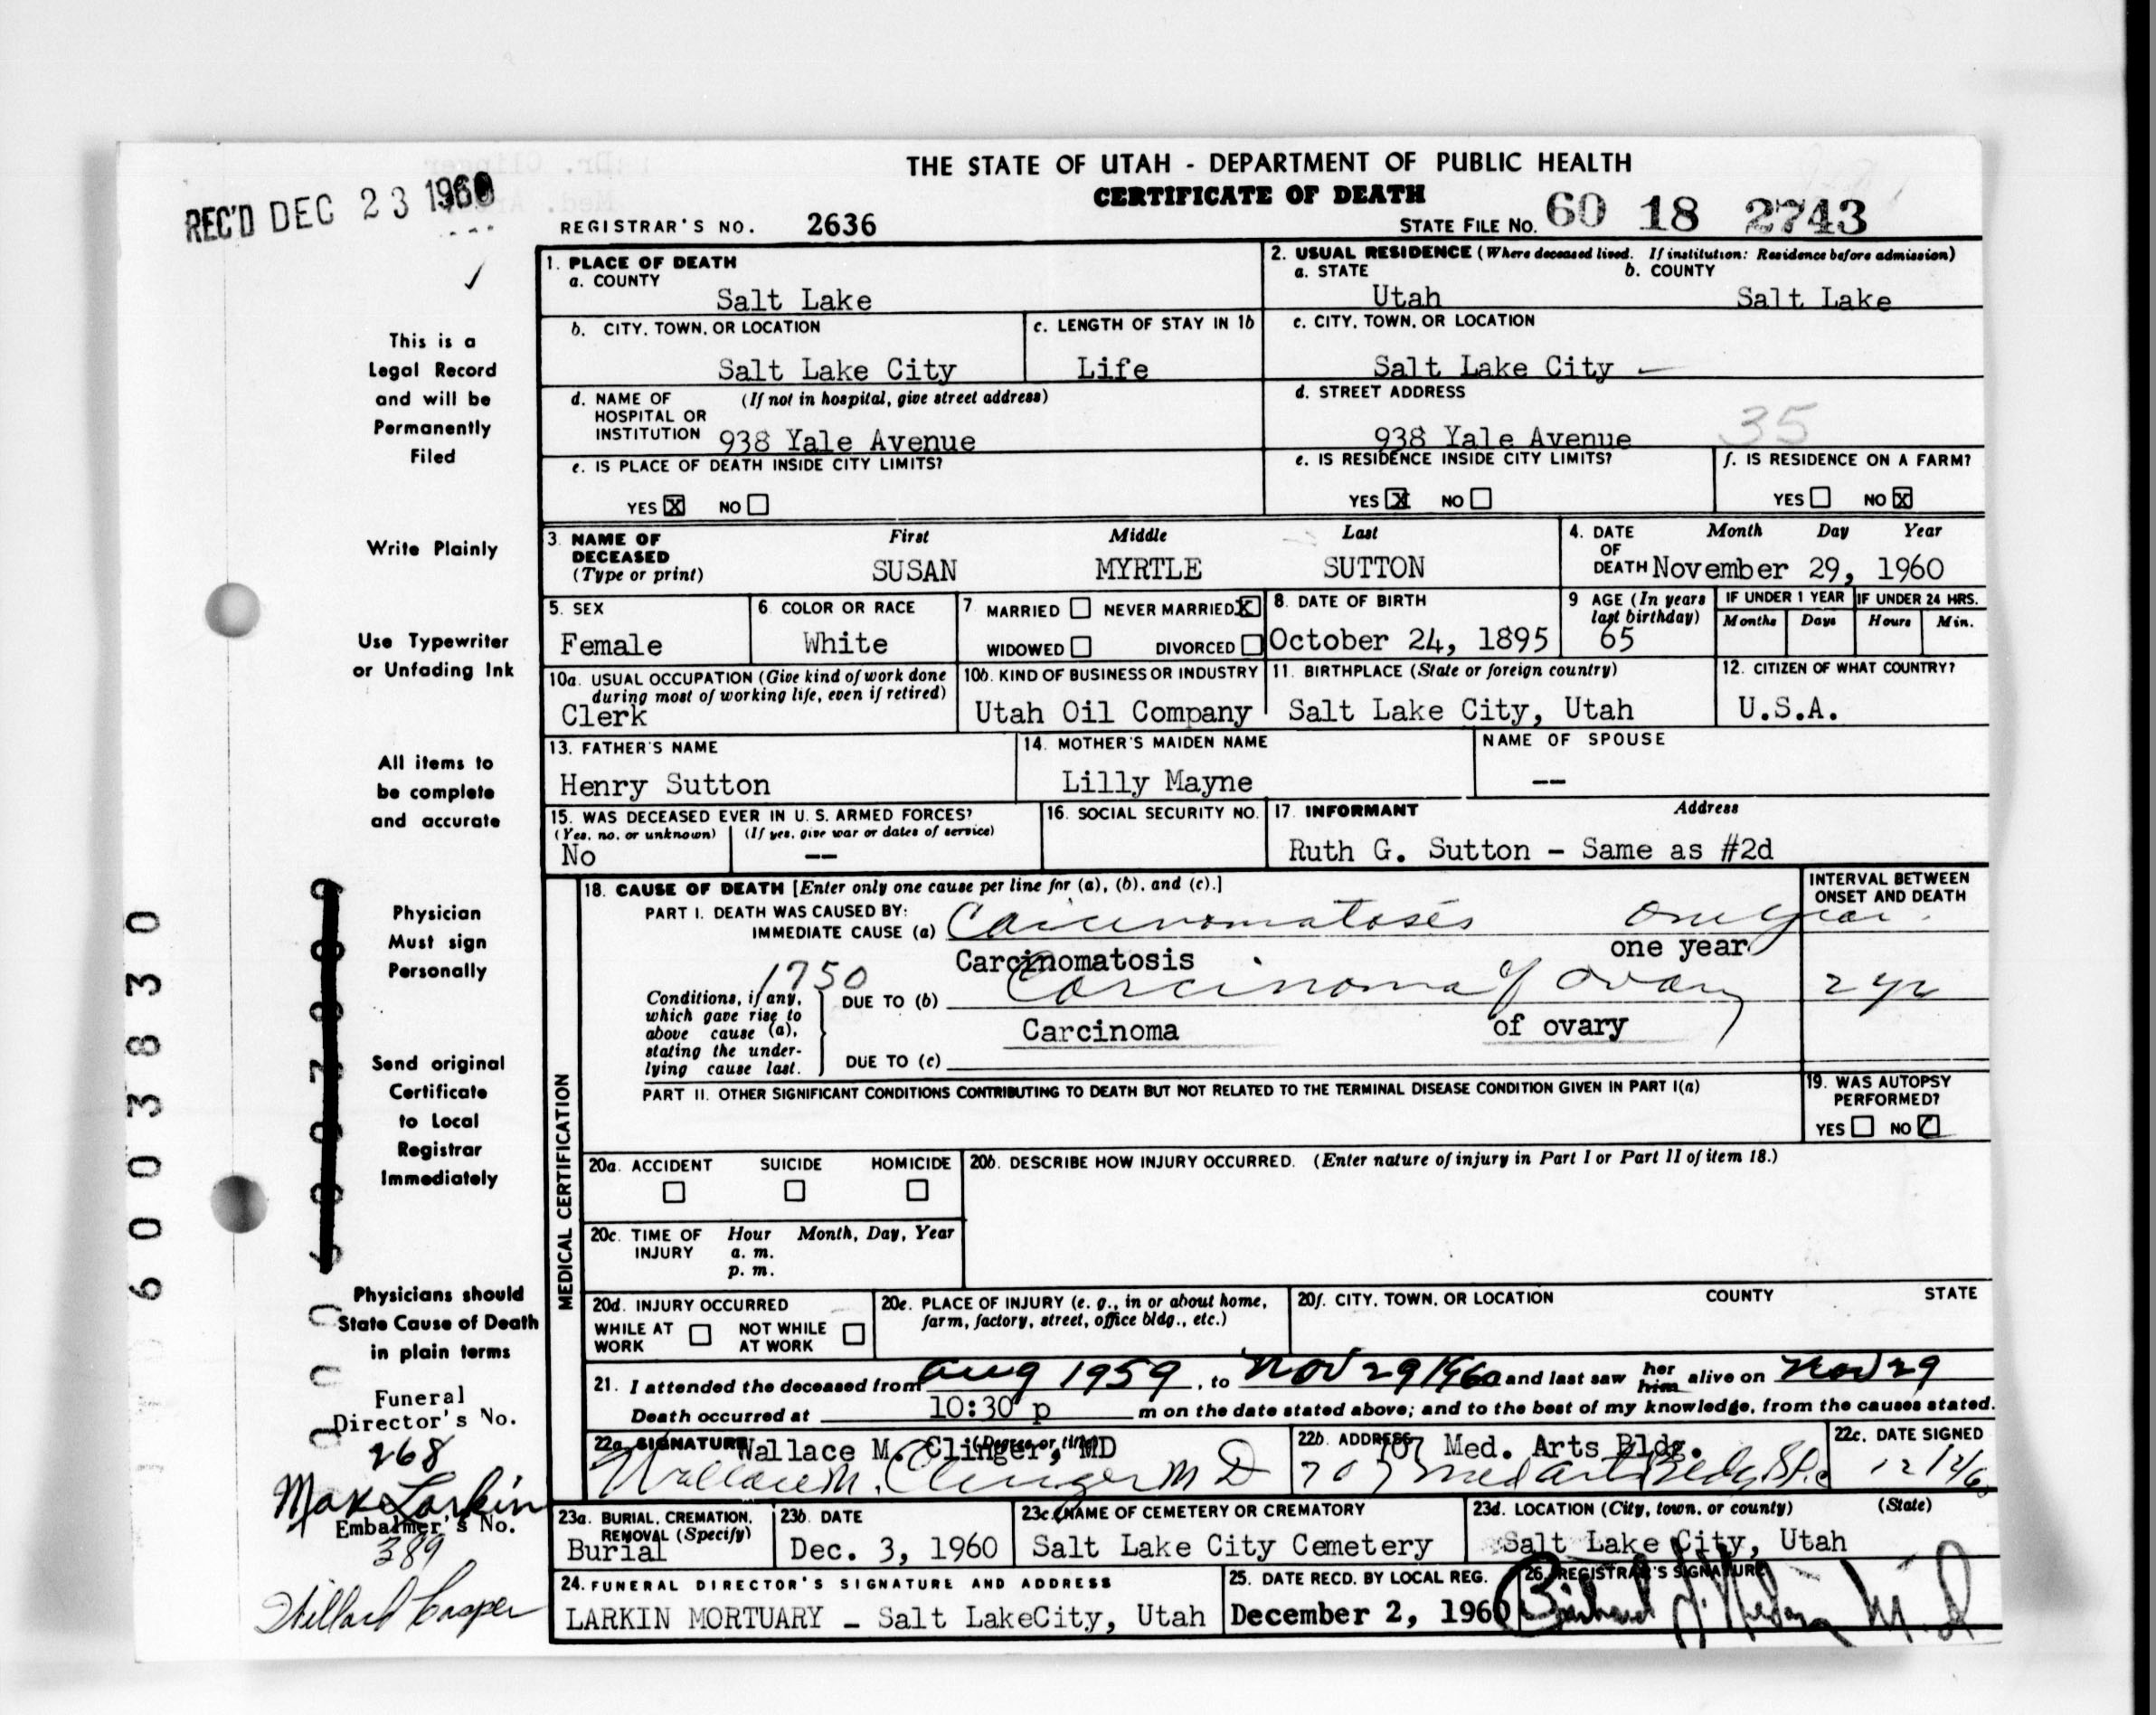 THE STATE OF UTAH - DEPARTMENT OF PUBLIC HEALTH
CERTIFICATE OF DEATH
REC'D DEC 23 1960
REGISTRAR'S NO. 2636
STATE FILE NO. 60 18 2743
1. PLACE OF DEATH
a. COUNTY
Salt Lake
2. USUAL RESIDENCE (Where deceased lived. If institution: Residence before admission)
a. STATE b. COUNTY
Utah Salt Lake
b. CITY, TOWN, OR LOCATION
Salt Lake City
c. LENGTH OF STAY IN 1b
Life
c. CITY, TOWN, OR LOCATION
Salt Lake City
d. NAME OF (If not in hospital, give street address)
HOSPITAL OR
INSTITUTION 938 Yale Avenue
d. STREET ADDRESS
938 Yale Avenue 35
e. IS PLACE OF DEATH INSIDE CITY LIMITS?
YES X NO
e. IS RESIDENCE INSIDE CITY LIMITS?
YES X NO
f. IS RESIDENCE ON A FARM?
YES NO X
3. NAME OF DECEASED (Type or print)
First Middle Last
SUSAN MYRTLE SUTTON
4. DATE OF DEATH
Month Day Year
November 29, 1960
5. SEX
Female
6. COLOR OR RACE
White
7. MARRIED NEVER MARRIED X
WIDOWED DIVORCED
8. DATE OF BIRTH
October 24, 1895
9 AGE (In years last birthday)
65
IF UNDER 1 YEAR
Months Days
IF UNDER 24 HRS.
Hours Min.
10a. USUAL OCCUPATION (Give kind of work done
during most of working life, even if retired)
Clerk
10b. KIND OF BUSINESS OR INDUSTRY
Utah Oil Company
11. BIRTHPLACE (State or foreign country)
Salt Lake City, Utah
12. CITIZEN OF WHAT COUNTRY?
U.S.A.
13. FATHER'S NAME
Henry Sutton
14. MOTHER'S MAIDEN NAME
Lilly Mayne
NAME OF SPOUSE
--
15. WAS DECEASED EVER IN U. S. ARMED FORCES?
(Yes, no, or unknown) (If yes, give war or dates of service)
No --
16. SOCIAL SECURITY NO.
17. INFORMANT Address
Ruth G. Sutton - Same as #2d
MEDICAL CERTIFICATION
18. CAUSE OF DEATH [Enter only one cause per line for (a), (b), and (c).]
INTERVAL BETWEEN
ONSET AND DEATH
PART I. DEATH WAS CAUSED BY:
IMMEDIATE CAUSE (a) Carcinomatosis one year
Carcinomatosis one year
1750
Conditions, if any,
which gave rise to
above cause (a),
stating the under-
lying cause last.
DUE TO (b) Carcinoma of ovary 2 yr
Carcinoma of ovary
DUE TO (c)
PART II. OTHER SIGNIFICANT CONDITIONS CONTRIBUTING TO DEATH BUT NOT RELATED TO THE TERMINAL DISEASE CONDITION GIVEN IN PART I(a)
19. WAS AUTOPSY
PERFORMED?
YES NO
20a. ACCIDENT SUICIDE HOMICIDE
20b. DESCRIBE HOW INJURY OCCURRED. (Enter nature of injury in Part I or Part II of item 18.)
20c. TIME OF INJURY
Hour Month, Day, Year
a. m.
p. m.
20d. INJURY OCCURRED
WHILE AT WORK NOT WHILE AT WORK
20e. PLACE OF INJURY (e. g., in or about home,
farm, factory, street, office bldg., etc.)
20f. CITY, TOWN, OR LOCATION COUNTY STATE
21. I attended the deceased from Aug 1959, to Nov 29 1960 and last saw her him alive on Nov 29
Death occurred at 10:30 p m on the date stated above; and to the best of my knowledge, from the causes stated.
22a. SIGNATURE (Degree or title)
Wallace M. Clinger, MD
Wallace M. Clinger M D
22b. ADDRESS
707 Med. Arts Bldg.
707 Med Arts Bldg SLC
22c. DATE SIGNED
23a. BURIAL, CREMATION, REMOVAL (Specify)
Burial
23b. DATE
Dec. 3, 1960
23c. NAME OF CEMETERY OR CREMATORY
Salt Lake City Cemetery
23d. LOCATION (City, town, or county) (State)
Salt Lake City, Utah
24. FUNERAL DIRECTOR'S SIGNATURE AND ADDRESS
LARKIN MORTUARY - Salt LakeCity, Utah
25. DATE RECD. BY LOCAL REG.
December 2, 1960
26. REGISTRAR'S SIGNATURE
This is a
Legal Record
and will be
Permanently
Filed
Write Plainly
Use Typewriter
or Unfading Ink
All items to
be complete
and accurate
Physician
Must sign
Personally
Send original
Certificate
to Local
Registrar
Immediately
Physicians should
State Cause of Death
in plain terms
Funeral
Director's No.
268
Max Larkin
Embalmer's No.
389
Willard Casper
6003830